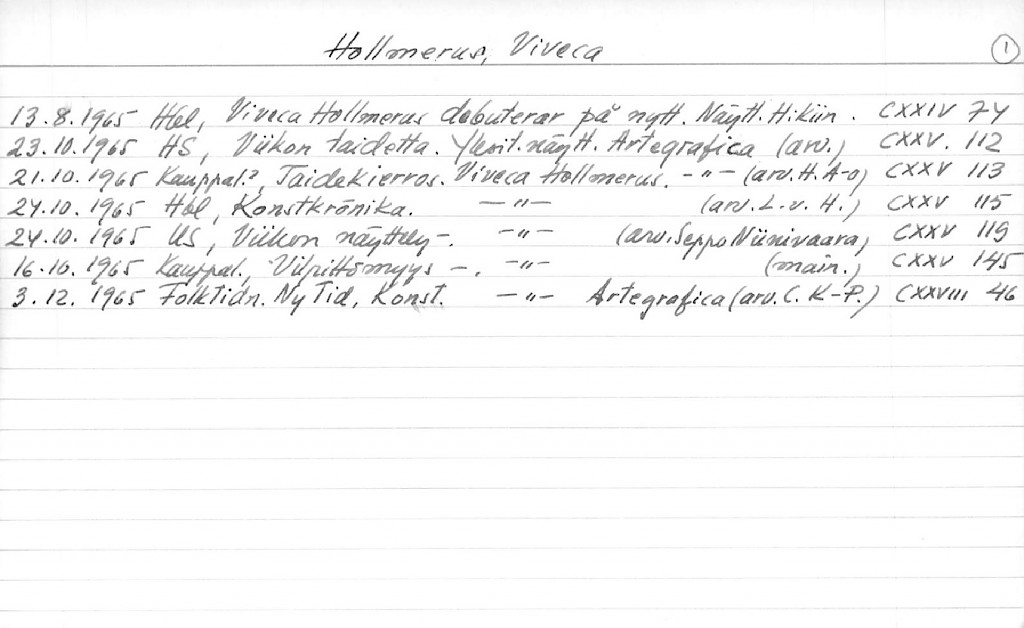 Hollmerus, Viveca 1
13.8.1965 Hbl, Viveca Hollmerus debuterar på nytt. Näytt. H:kiin. CXXIV 74
23.10.1965 HS, Viikon taidetta. Yksit.näytt. Artegrafica (arv.) CXXV. 112
21.10.1965 Kauppal.?, Taidekierros. Viveca Hollmerus. -"- (arv. H. A-o) CXXV 113
24.10.1965 Hbl, Konstkrönika. -"- (arv. L.v. H.) CXXV 115
24.10.1965 US, Viikon näyttely-. -"- (arv. Seppo Niinivaara) CXXV 119
16.10.1965 Kauppal., Vilpittömyys -. -"- (main.) CXXV 145
3.12.1965 Folktidn. Ny Tid, Konst. -"- Artegrafica (arv. C. K-P.) CXXVIII 46